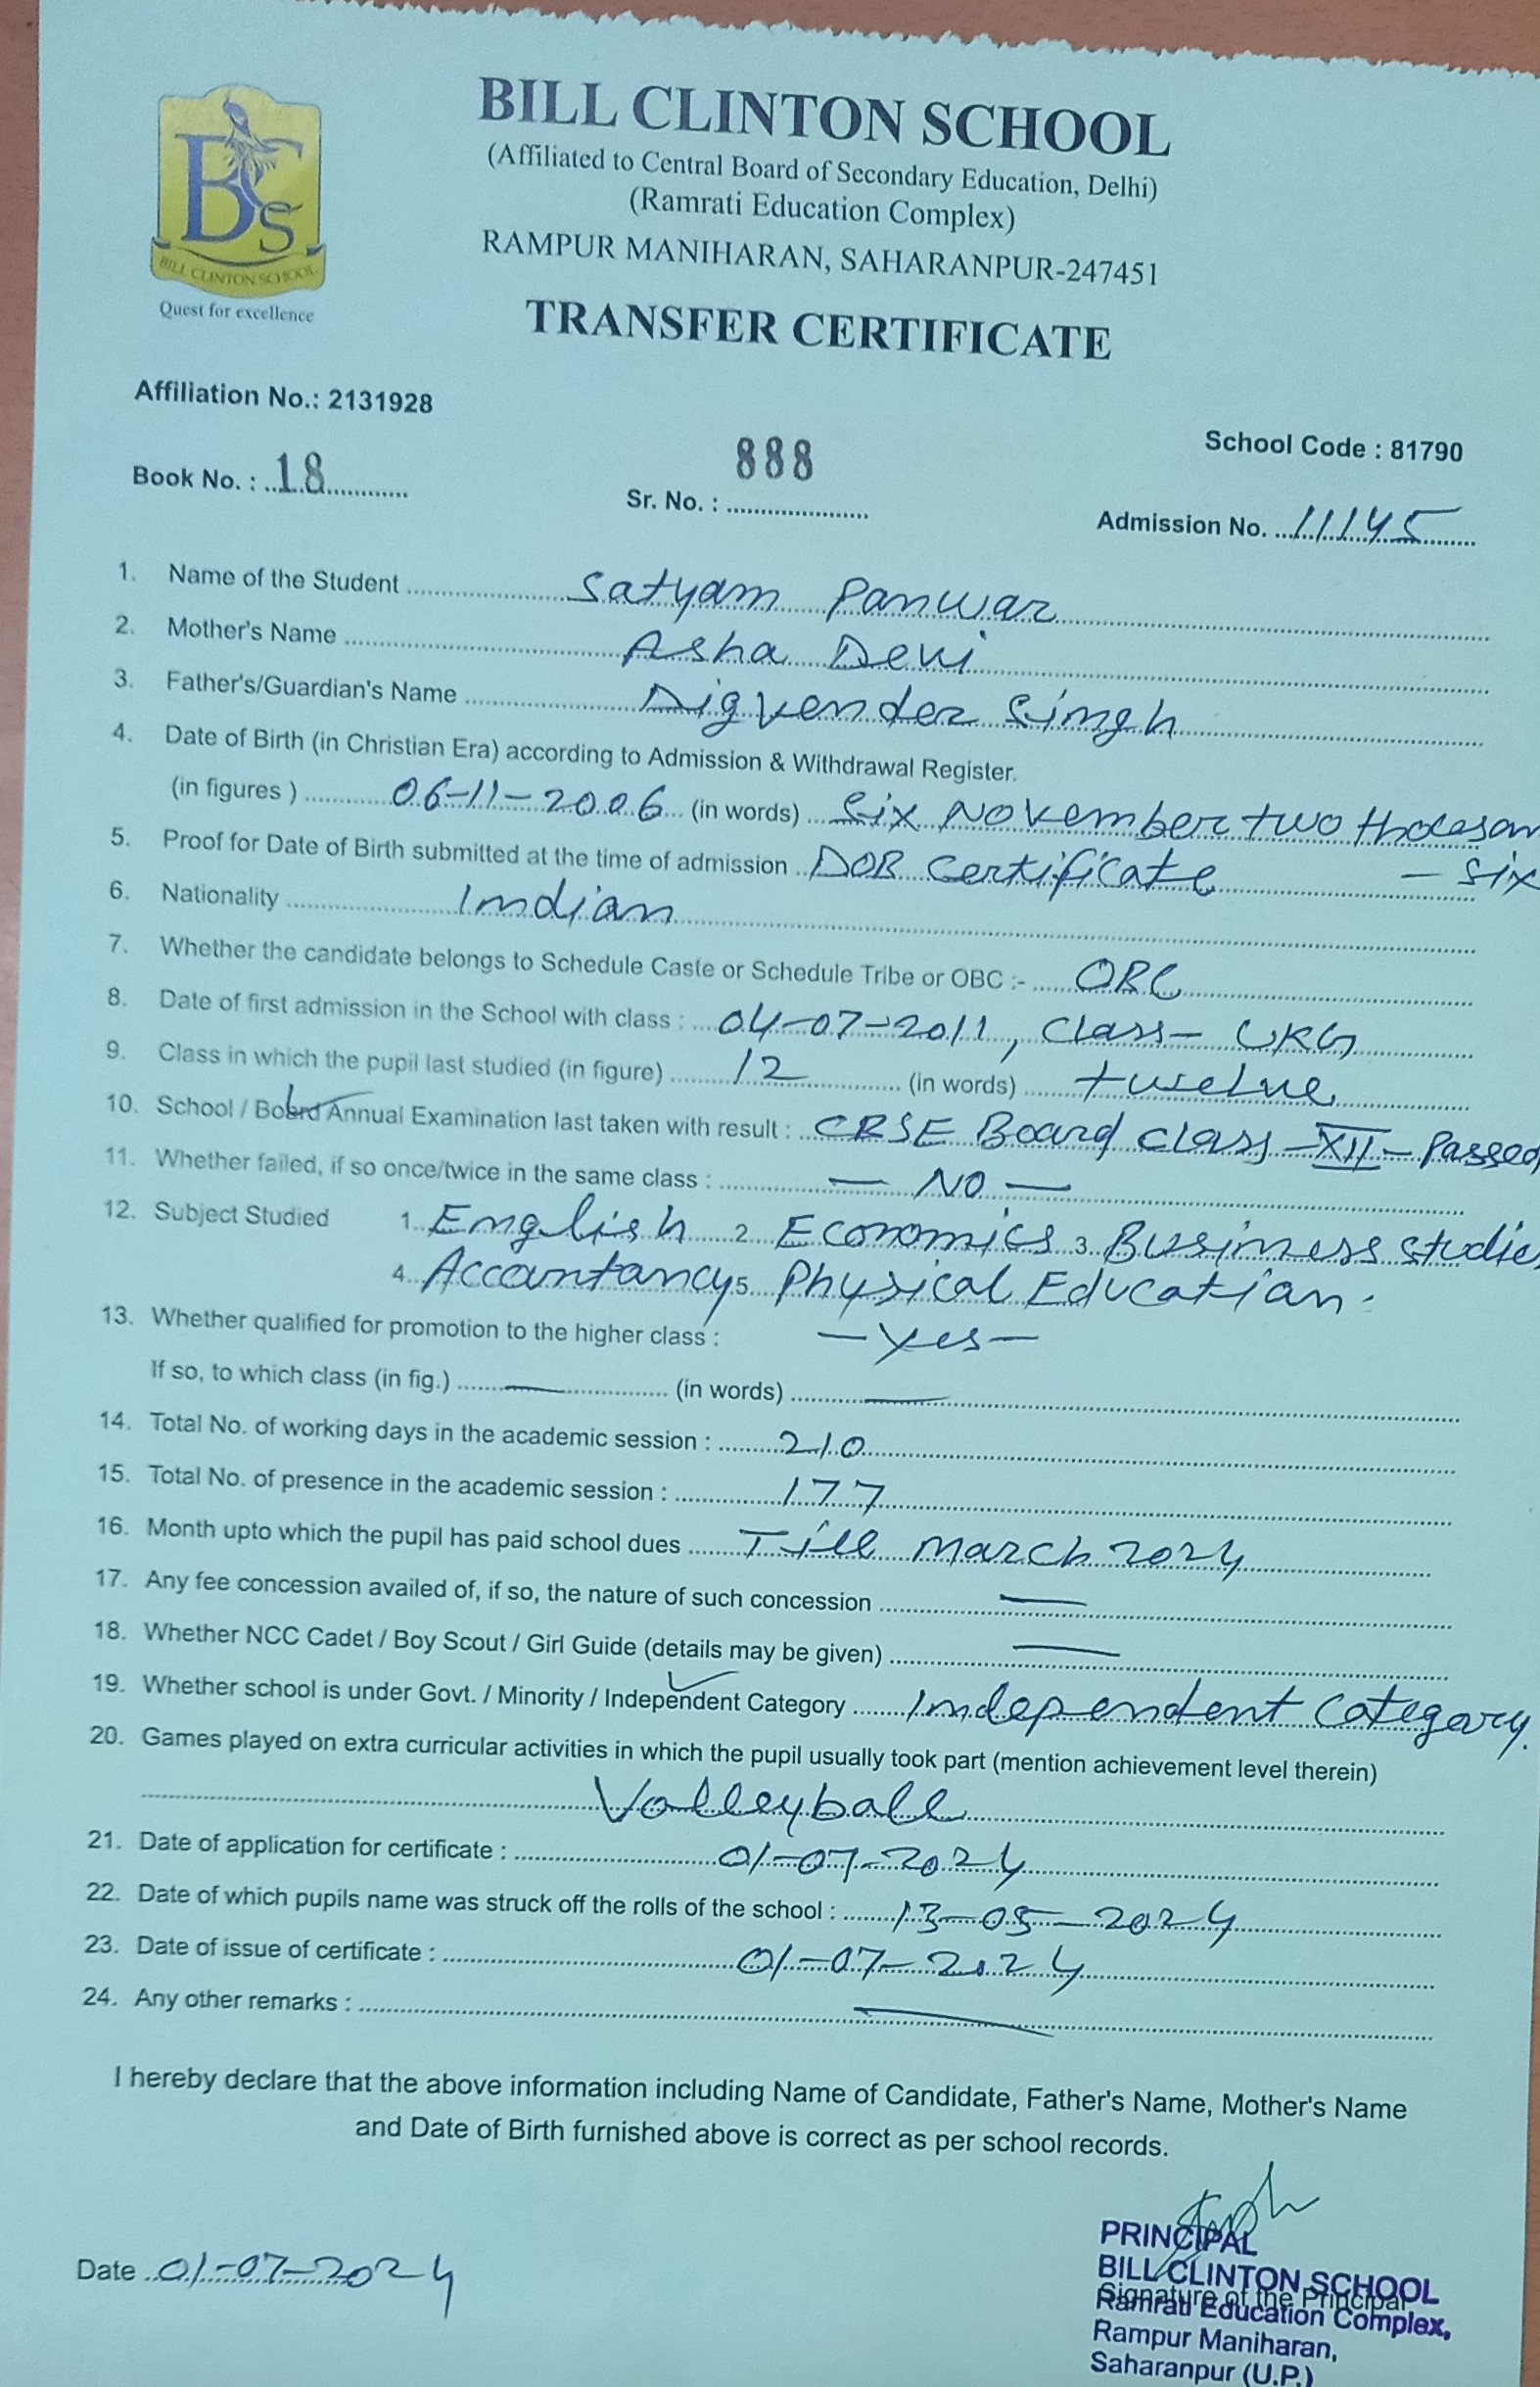 BILL CLINTON SCHOOL
(Affiliated to Central Board of Secondary Education, Delhi)
(Ramrati Education Complex)
RAMPUR MANIHARAN, SAHARANPUR-247451
BCS
BILL CLINTON SCHOOL
Quest for excellence
TRANSFER CERTIFICATE
Affiliation No.: 2131928
School Code : 81790
Book No. : 18 Sr. No. : 888 Admission No. 11145
1. Name of the Student Satyam Panwar
2. Mother's Name Asha Devi
3. Father's/Guardian's Name Digvender Singh
4. Date of Birth (in Christian Era) according to Admission & Withdrawal Register.
(in figures ) 06-11-2006 (in words) Six November two thousan
- six
5. Proof for Date of Birth submitted at the time of admission DOB Certificate
6. Nationality Indian
7. Whether the candidate belongs to Schedule Caste or Schedule Tribe or OBC :- OBC
8. Date of first admission in the School with class : 04-07-2011, Class- UKG
9. Class in which the pupil last studied (in figure) 12 (in words) twelve
10. School / Board Annual Examination last taken with result : CBSE Board Class -XII- Passed
11. Whether failed, if so once/twice in the same class : - NO -
12. Subject Studied 1. English 2. Economics 3. Business studie
4. Accountancy 5. Physical Education.
13. Whether qualified for promotion to the higher class : - Yes -
If so, to which class (in fig.) — (in words) —
14. Total No. of working days in the academic session : 210
15. Total No. of presence in the academic session : 177
16. Month upto which the pupil has paid school dues Till March 2024
17. Any fee concession availed of, if so, the nature of such concession —
18. Whether NCC Cadet / Boy Scout / Girl Guide (details may be given) —
19. Whether school is under Govt. / Minority / Independent Category Independent Category.
20. Games played on extra curricular activities in which the pupil usually took part (mention achievement level therein)
Volleyball
21. Date of application for certificate : 01-07-2024
22. Date of which pupils name was struck off the rolls of the school : 13-05-2024
23. Date of issue of certificate : 01-07-2024
24. Any other remarks : —
I hereby declare that the above information including Name of Candidate, Father's Name, Mother's Name
and Date of Birth furnished above is correct as per school records.
Date 01-07-2024
PRINCIPAL
BILL CLINTON SCHOOL
Signature of the Principal
Ramrati Education Complex,
Rampur Maniharan,
Saharanpur (U.P.)